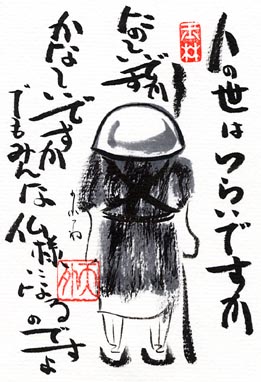 人の世はつらいですか
たのしいですか
かなしいですか
でもみんな仏様になる
のですよ